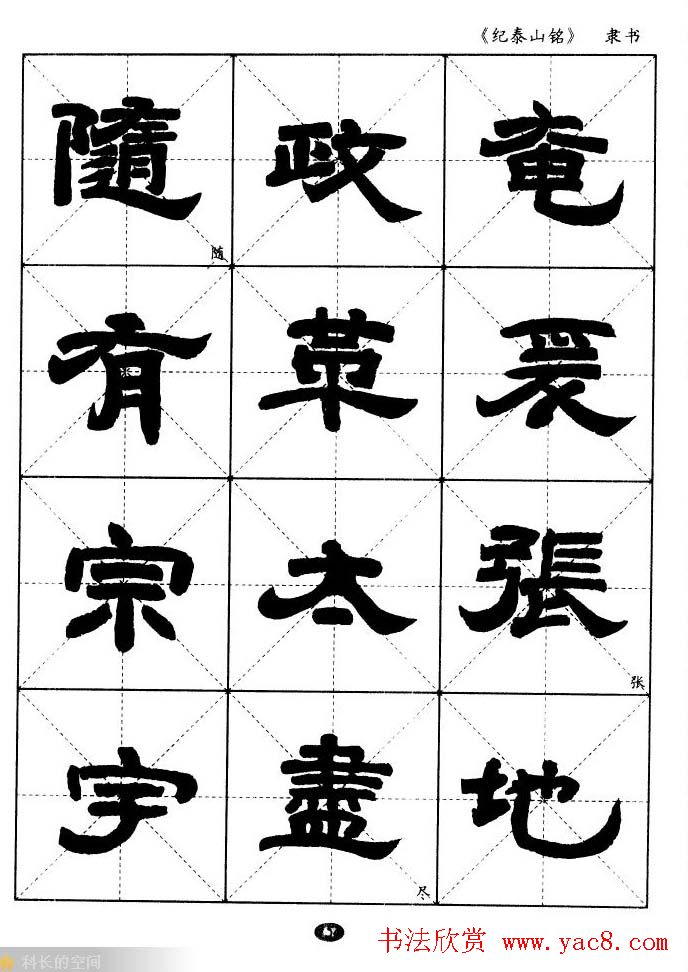 《纪泰山铭》 隶书
隨 政 奄
随
有 革 爰
宗 太 張
张
宇 盡 地
尽
书法欣赏 www.yac8.com
科长的空间